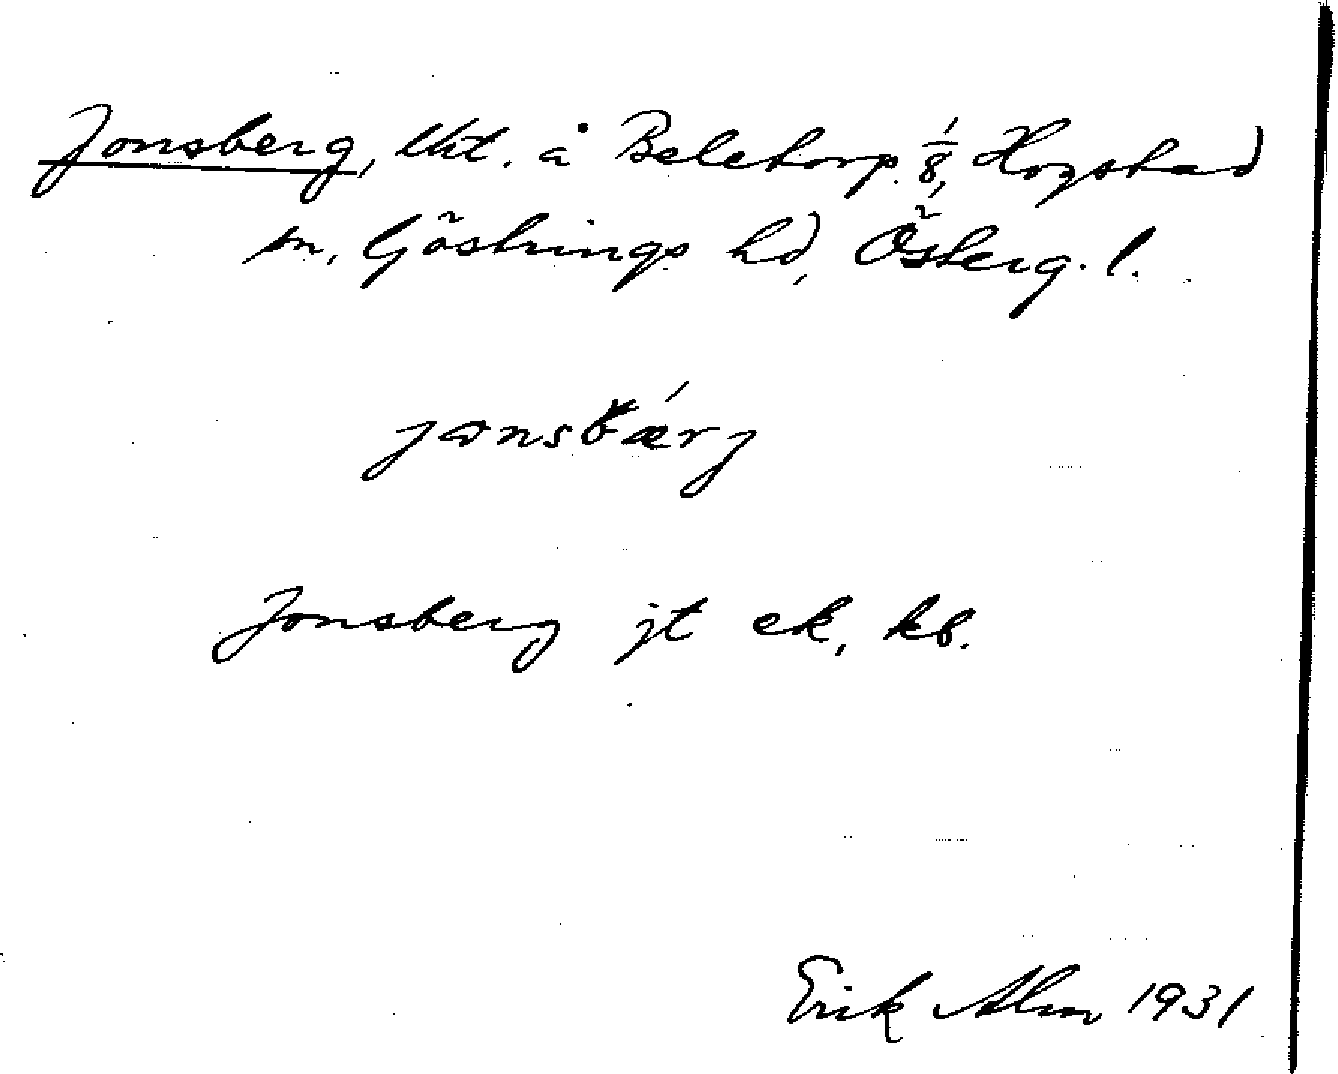 Jonsberg, lht. å Beletorp 1/8, Hogstad
sn, Göstrings hd, Österg. l.
jonsbærj
Jonsberg jt ek, kb.
Erik Alm 1931